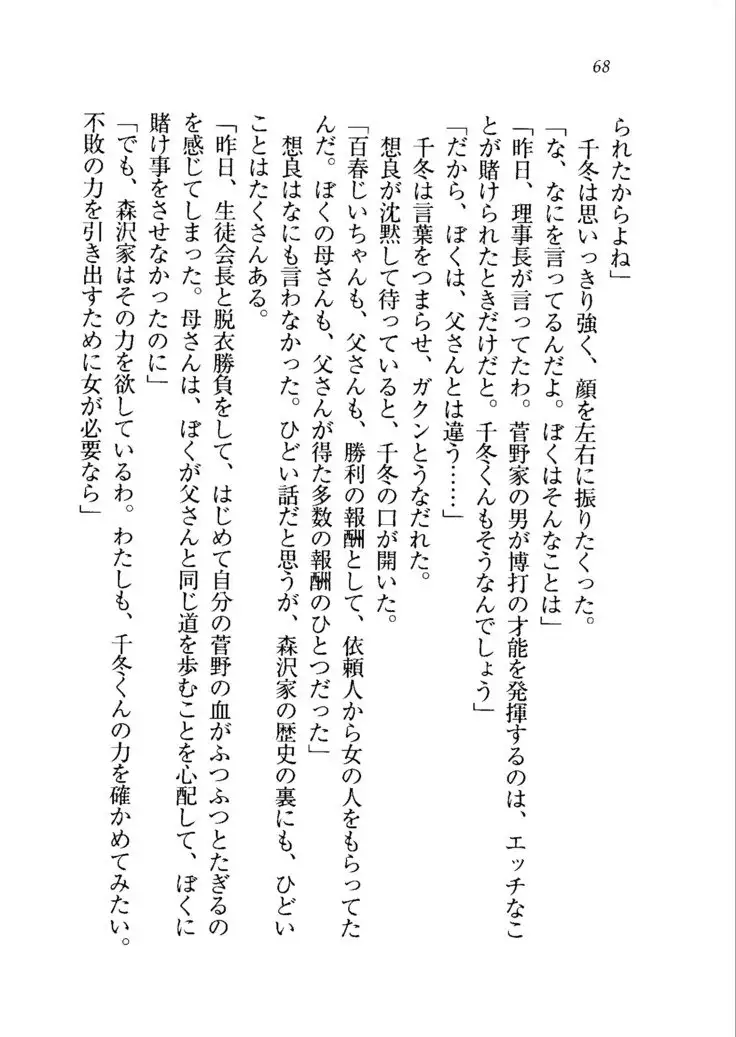 68
られたからよね」
千冬は思いっきり強く、顔を左右に振りたくった。
「な、なにを言ってるんだよ。ぼくはそんなことは」
「昨日、理事長が言ってたわ。菅野家の男が博打の才能を発揮するのは、エッチなこ
とが賭けられたときだけだと。千冬くんもそうなんでしょう」
「だから、ぼくは、父さんとは違う……」
千冬は言葉をつまらせ、ガクンとうなだれた。
想良が沈黙して待っていると、千冬の口が開いた。
「百春じいちゃんも、父さんも、勝利の報酬として、依頼人から女の人をもらってた
んだ。ぼくの母さんも、父さんが得た多数の報酬のひとつだった」
想良はなにも言わなかった。ひどい話だと思うが、森沢家の歴史の裏にも、ひどい
ことはたくさんある。
「昨日、生徒会長と脱衣勝負をして、はじめて自分の菅野の血がふつふつとたぎるの
を感じてしまった。母さんは、ぼくが父さんと同じ道を歩むことを心配して、ぼくに
賭け事をさせなかったのに」
「でも、森沢家はその力を欲しているわ。わたしも、千冬くんの力を確かめてみたい。
不敗の力を引き出すために女が必要なら」